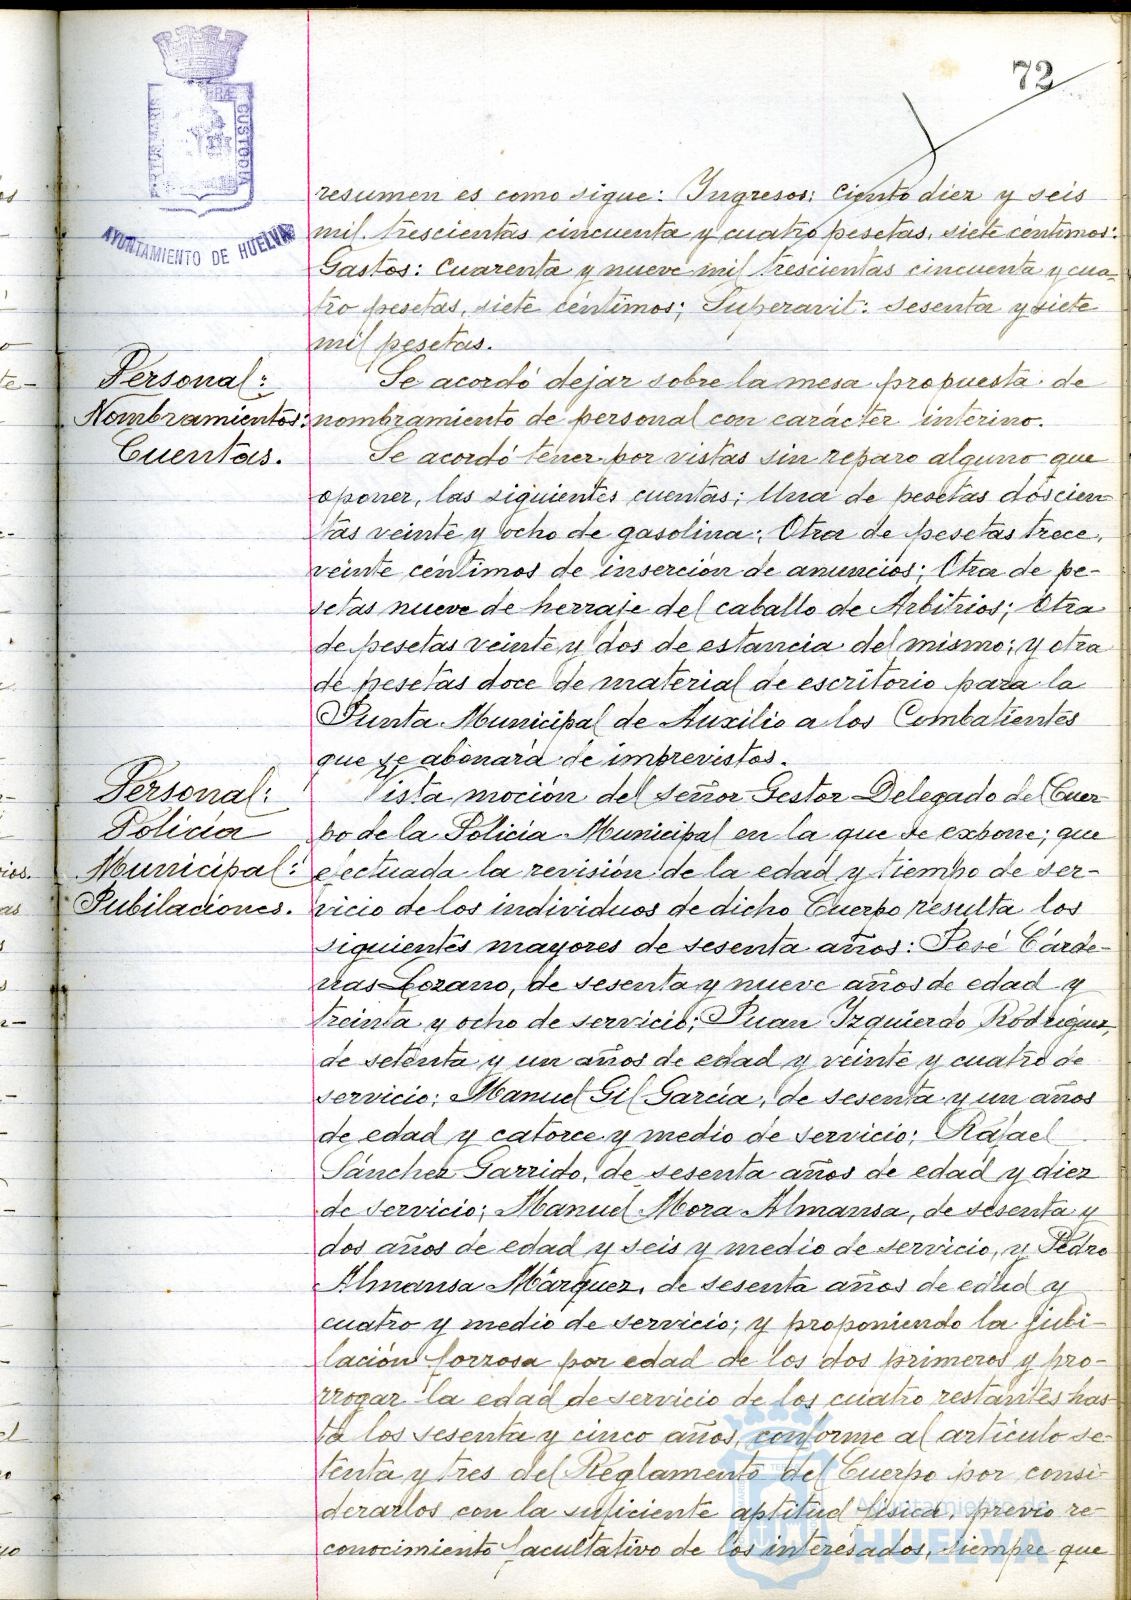 72
PORTUS MARIS ET TERRÆ CUSTODIA
AYUNTAMIENTO DE HUELVA
resumen es como sigue: Ingresos: ciento diez y seis
mil trescientas cincuenta y cuatro pesetas, siete céntimos:
Gastos: Cuarenta y nueve mil trescientas cincuenta y cua-
tro pesetas, siete céntimos; Superavit: sesenta y siete
mil pesetas.
Personal:
Nombramientos:
Se acordó dejar sobre la mesa propuesta de
nombramiento de personal con carácter interino.
Cuentas.
Se acordó tener por vistas sin reparo alguno que
oponer, las siguientes cuentas; Una de pesetas doscien-
tas veinte y ocho de gasolina; Otra de pesetas trece,
veinte céntimos de inserción de anuncios; Otra de pe-
setas nueve de herraje del caballo de Arbitrios; Otra
de pesetas veinte y dos de estancia del mismo; y otra
de pesetas doce de material de escritorio para la
Junta Municipal de Auxilio a los Combatientes
que se abonará de imprevistos.
Personal:
Policía
Municipal:
Jubilaciones.
Vista moción del señor Gestor Delegado del Cuer-
po de la Policía Municipal en la que se expone; que
efectuada la revisión de la edad y tiempo de ser-
vicio de los individuos de dicho Cuerpo resulta los
siguientes mayores de sesenta años: José Cárde-
nas Lozano, de sesenta y nueve años de edad y
treinta y ocho de servicio; Juan Izquierdo Rodríguez,
de setenta y un años de edad y veinte y cuatro de
servicio; Manuel Gil García, de sesenta y un años
de edad y catorce y medio de servicio; Rafael
Sánchez Garrido, de sesenta años de edad y diez
de servicio; Manuel Mora Almansa, de sesenta y
dos años de edad y seis y medio de servicio, y Pedro
Almansa Márquez, de sesenta años de edad y
cuatro y medio de servicio; y proponiendo la jubi-
lación forzosa por edad de los dos primeros y pro-
rrogar la edad de servicio de los cuatro restantes has-
ta los sesenta y cinco años, conforme al artículo se-
tenta y tres del Reglamento del Cuerpo por consi-
derarlos con la suficiente aptitud física, previo re-
conocimiento facultativo de los interesados, siempre que
Ayuntamiento de
HUELVA